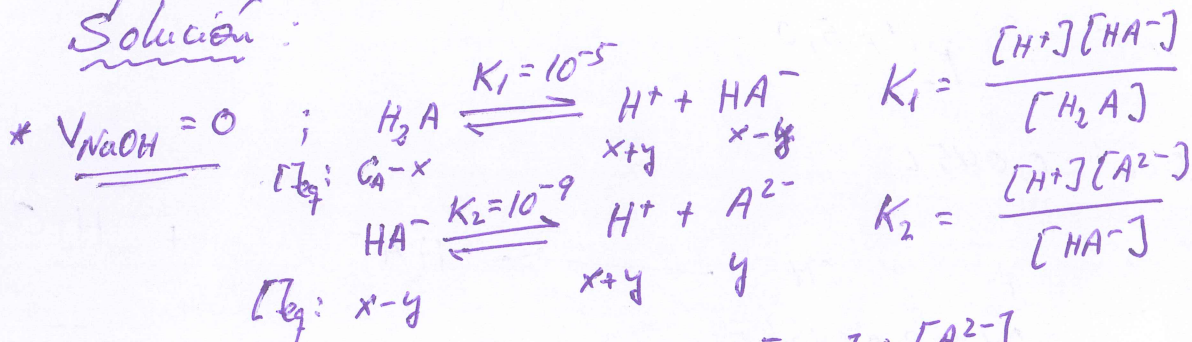 Solución:
* V_NaOH = 0 ; H₂A ⇌ H⁺ + HA⁻ K₁ = 10⁻⁵ K₁ = [H⁺][HA⁻] / [H₂A]
[ ]eq: C_A-x x+y x-y
HA⁻ ⇌ H⁺ + A²⁻ K₂ = 10⁻⁹ K₂ = [H⁺][A²⁻] / [HA⁻]
[ ]eq: x-y x+y y
[A²⁻]